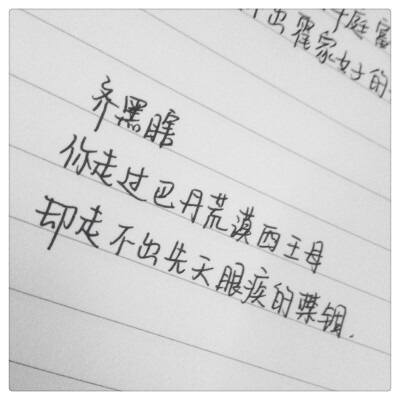 庭
出霍家女子的
齐黑瞎
你走过巴丹荒漠西王母
却走不出先天眼疾的